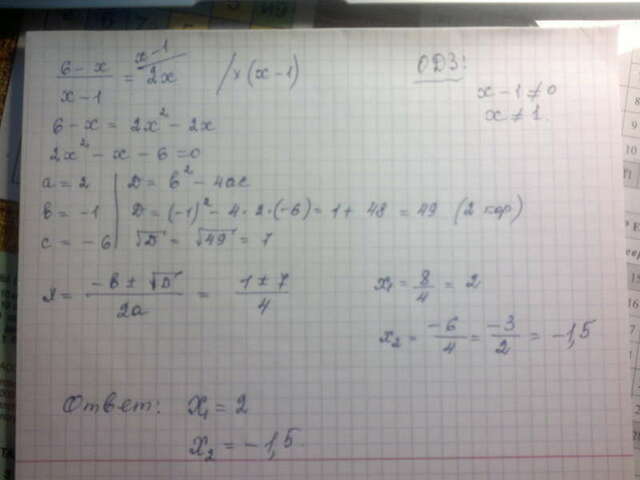 (6-x)/(x-1) = 2x    x-1/    /×(x-1)    ОДЗ:
6-x = 2x² - 2x    x-1≠0
2x² - x - 6 = 0    x≠1.
a = 2 | D = b² - 4ac
b = -1 | D = (-1)² - 4·2·(-6) = 1 + 48 = 49 (2 кор)
c = -6 | √D = √49 = 7
x = (-b ± √D)/(2a) = (1 ± 7)/4    x₁ = 8/4 = 2
x₂ = -6/4 = -3/2 = -1,5
Ответ: x₁ = 2
x₂ = -1,5.